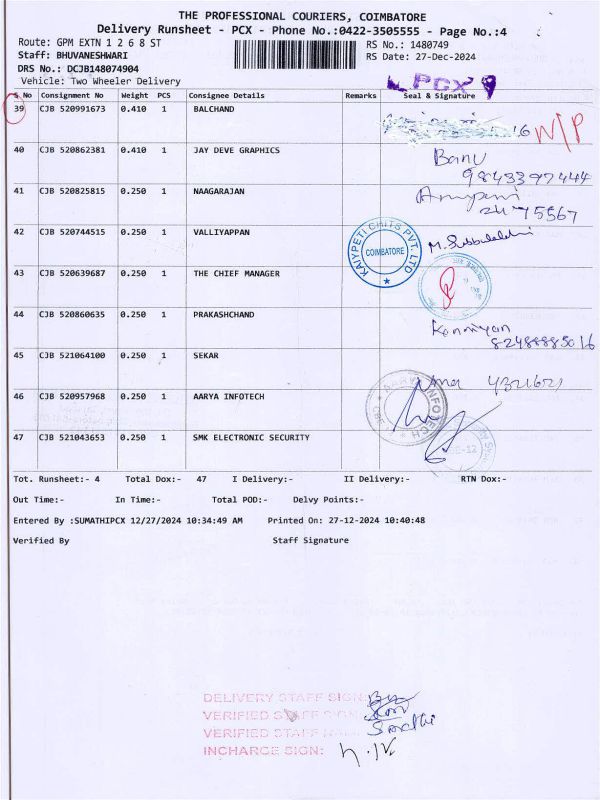 THE PROFESSIONAL COURIERS, COIMBATORE
Delivery Runsheet - PCX - Phone No.:0422-3505555 - Page No.:4
Route: GPM EXTN 1 2 6 8 ST
RS No.: 1480749
Staff: BHUVANESHWARI
RS Date: 27-Dec-2024
DRS No.: DCJB148074904
Vehicle: Two Wheeler Delivery
PCX
S No Consignment No Weight PCS Consignee Details Remarks Seal & Signature
39 CJB 520991673 0.410 1 BALCHAND
40 CJB 520862381 0.410 1 JAY DEVE GRAPHICS Banu
9843397444
41 CJB 520825815 0.250 1 NAAGARAJAN
42 CJB 520744515 0.250 1 VALLIYAPPAN KAIYPETI CHITS PVT. LTD COIMBATORE
43 CJB 520639687 0.250 1 THE CHIEF MANAGER
44 CJB 520860635 0.250 1 PRAKASHCHAND
45 CJB 521064100 0.250 1 SEKAR
46 CJB 520957968 0.250 1 AARYA INFOTECH
47 CJB 521043653 0.250 1 SMK ELECTRONIC SECURITY
Tot. Runsheet:- 4 Total Dox:- 47 I Delivery:- II Delivery:- RTN Dox:-
Out Time:- In Time:- Total POD:- Delvy Points:-
Entered By :SUMATHIPCX 12/27/2024 10:34:49 AM Printed On: 27-12-2024 10:40:48
Verified By Staff Signature
DELIVERY STAFF SIGN
VERIFIED STAFF SIGN
VERIFIED STAFF NAME
INCHARGE SIGN: